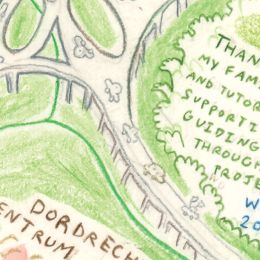 THAN
MY FAM
AND TUTOR
SUPPORTI
GUIDING
THROUGH
PROJE
W
20
DORDRECH
ENTRUM